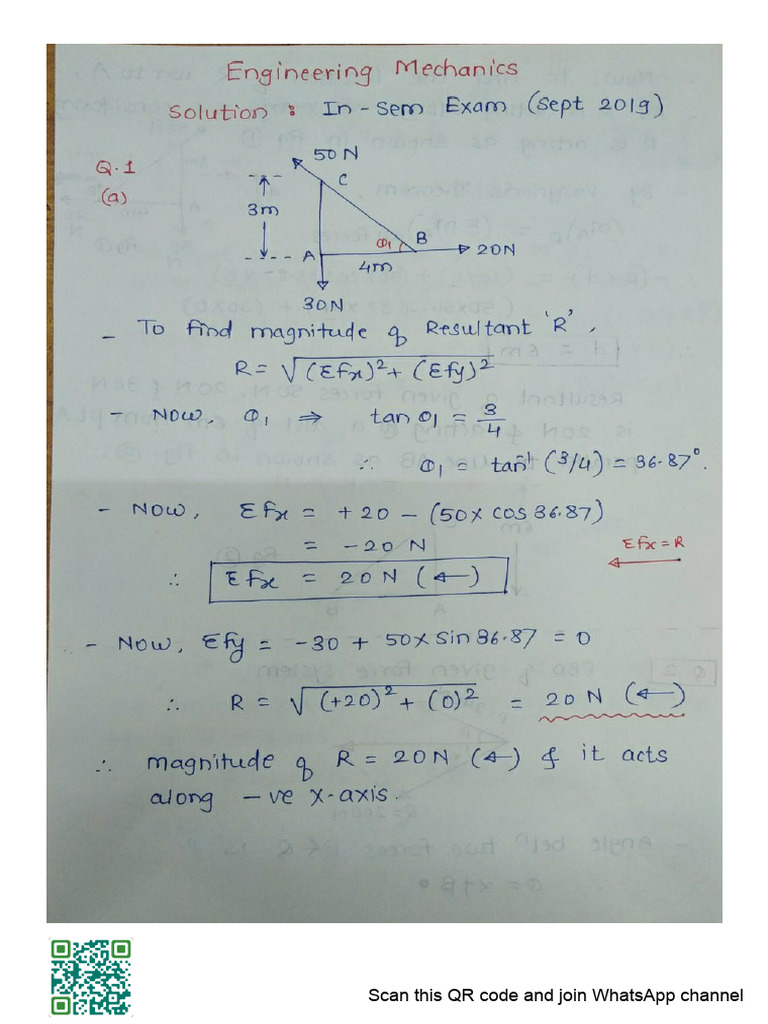 Engineering Mechanics
Solution : In-Sem Exam (Sept 2019)
Q.1
(a)
50 N
C
3m
A
θ₁
B
20N
4m
30N
- To find magnitude of Resultant 'R',
R = √(Σfx)² + (Σfy)²
- Now, θ₁ ⇒ tan θ₁ = 3/4
∴ θ₁ = tan⁻¹ (3/4) = 36.87°.
- Now, Σfx = +20 - (50x cos 36.87)
= -20 N
Σfx = R
∴ Σfx = 20 N (←)
- Now, Σfy = -30 + 50x sin 36.87 = 0
∴ R = √(+20)² + (0)² = 20 N (←)
∴ magnitude of R = 20N (←) & it acts
along -ve x-axis.
Scan this QR code and join WhatsApp channel